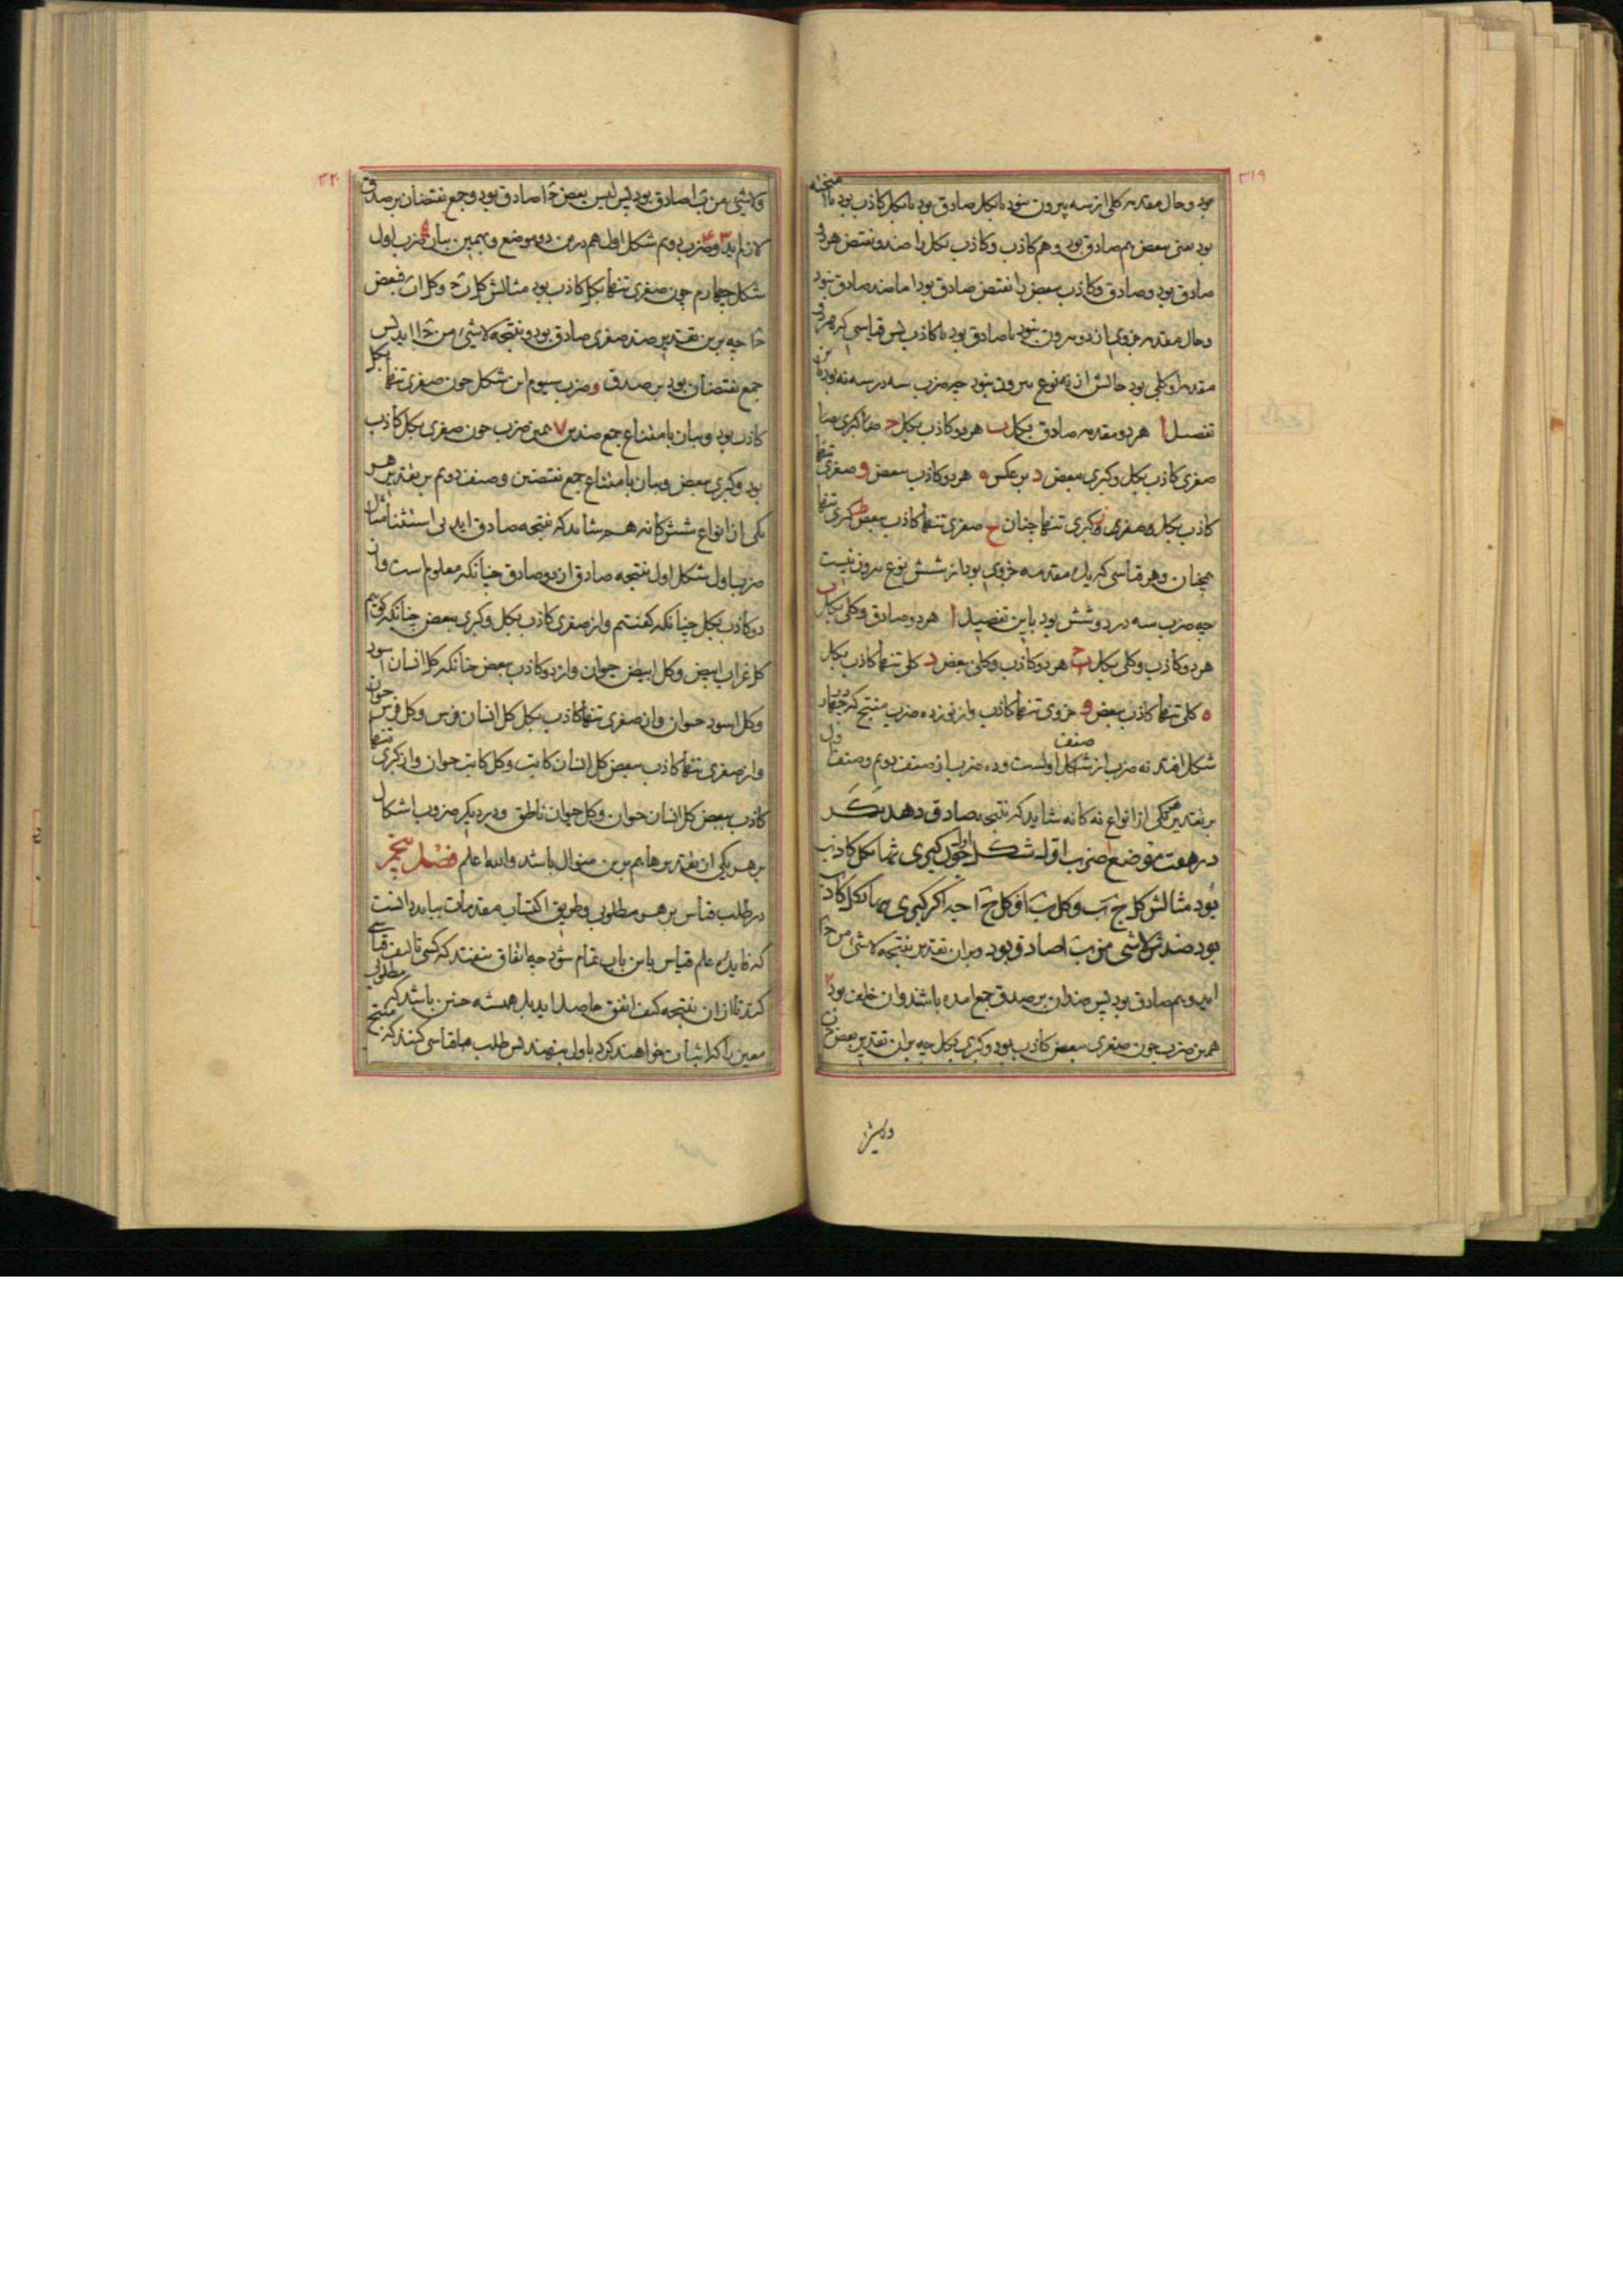 ٣١٩
بود و حال مقدمه کلی از سه بیرون نبود یا بکل صادق بود یا بکل کاذب بود یا
بود یعنی ببعض هم صادق بود و هم کاذب و کاذب بکل را ضد و نقیض هر دو
صادق بود و صادق و کاذب ببعض را نقیض صادق بود اما ضد صادق نبود
و حال مقدمه جزوی از دو بیرون نبود یا صادق بود یا کاذب پس قیاسی که هر دو
مقدمه او کلی بود حالش از نه نوع بیرون نبود چه ضرب سه در سه نه بود برین
تفصیل ا هر دو مقدمه صادق بکل ب هر دو کاذب بکل ج
صغری کاذب بکل و کبری ببعض د برعکس ه هر دو کاذب ببعض و صغری تنها
کاذب بکل ز کبری تنها چنان ح صغری تنها کاذب ببعض ط کبری تنها
همچنان و هر قیاسی که یک مقدمه جزوی بود از شش نوع بیرون نیست
چه ضرب سه در دو شش بود باین تفصیل ا هر دو صادق و کلی بکل ب
هر دو کاذب و کلی بکل ج هر دو کاذب و کلی ببعض د کلی تنها کاذب بکل
ه کلی تنها کاذب ببعض و جزوی تنها کاذب و از نوزده ضرب منتج که در چهار
شکل افتد نه ضرب از صنف اولست و ده ضرب از صنف دوم و صنف اول
بر تقدیر هر یکی از انواع نه کانه شاید که نتیجه صادق دهد مکر
در هفت موضع ا ضرب اول شکل اول چون کبری تنها بکل کاذب
بود مثالش کل ج ب و کل ب ا فکل ج ا چه اکر کبری بکل کاذب
بود ضدش لا شی من ب ا صادق بود و بران تقدیر نتیجه لا شی من ج ا
اید و هم صادق بود پس ضدان بر صدق جمع امده باشند و ان خلف بود ٢
همین ضرب چون صغری ببعض کاذب بود و کبری بکل چه بران تقدیر بعض ج ب
٣٢٠
و لا شی من ب ا صادق بود پس لیس بعض ج ا صادق بود و جمع نقیضان بر صدق
لازم اید ٣ ۴ و ضرب دوم شکل اول هم درین دو موضع و بهمین بیان ۵ ضرب اول
شکل چهارم چون صغری تنها بکل کاذب بود مثالش کل ب ج و کل ا ب فبعض
ج ا چه برین تقدیر ضد صغری صادق بود و نتیجه لا شی من ج ا اید پس
جمع نقیضان بود بر صدق و ضرب سیوم این شکل چون صغری تنها بکل
کاذب بود و بیان بامتناع جمع ضدین ٧ همین ضرب چون صغری بکل کاذب
بود و کبری ببعض و بیان بامتناع جمع نقیضین و صنف دوم بر تقدیر هر
یکی از انواع شش کانه هم شاید که نتیجه صادق اید بی استثنا مثال
ضرب اول شکل اول نتیجه صادق از دو صادق چنانکه معلوم است و از
دو کاذب بکل چنانکه کفتیم و از صغری کاذب بکل و کبری ببعض چنانکه کوییم
کل غراب ابیض و کل ابیض حیوان و از دو کاذب ببعض چنانکه کل انسان اسود
و کل اسود حیوان و از صغری تنها کاذب بکل کل انسان فرس و کل فرس حیوان
و از صغری تنها کاذب ببعض کل انسان کاتب و کل کاتب حیوان و از کبری تنها
کاذب ببعض کل انسان حیوان و کل حیوان ناطق و در دیکر ضروب اشکال
بر هر یکی ازین تقدیرها هم برین منوال باشد والله اعلم فصل پنجم
در طلب قیاس بر هر مطلوبی و طریق اکتساب مقدمات بباید دانست
که فایده علم قیاس باین باب تمام شود چه اتفاق نیفتد که کسی تالیف قیاسی
کند تا ازان نتیجه کیف اتفق حاصل اید بل همیشه چنین باشد که مطلوبی
معین را که اثبات خواهند کرد باول بنهند پس طلب قیاسی کنند که منتج